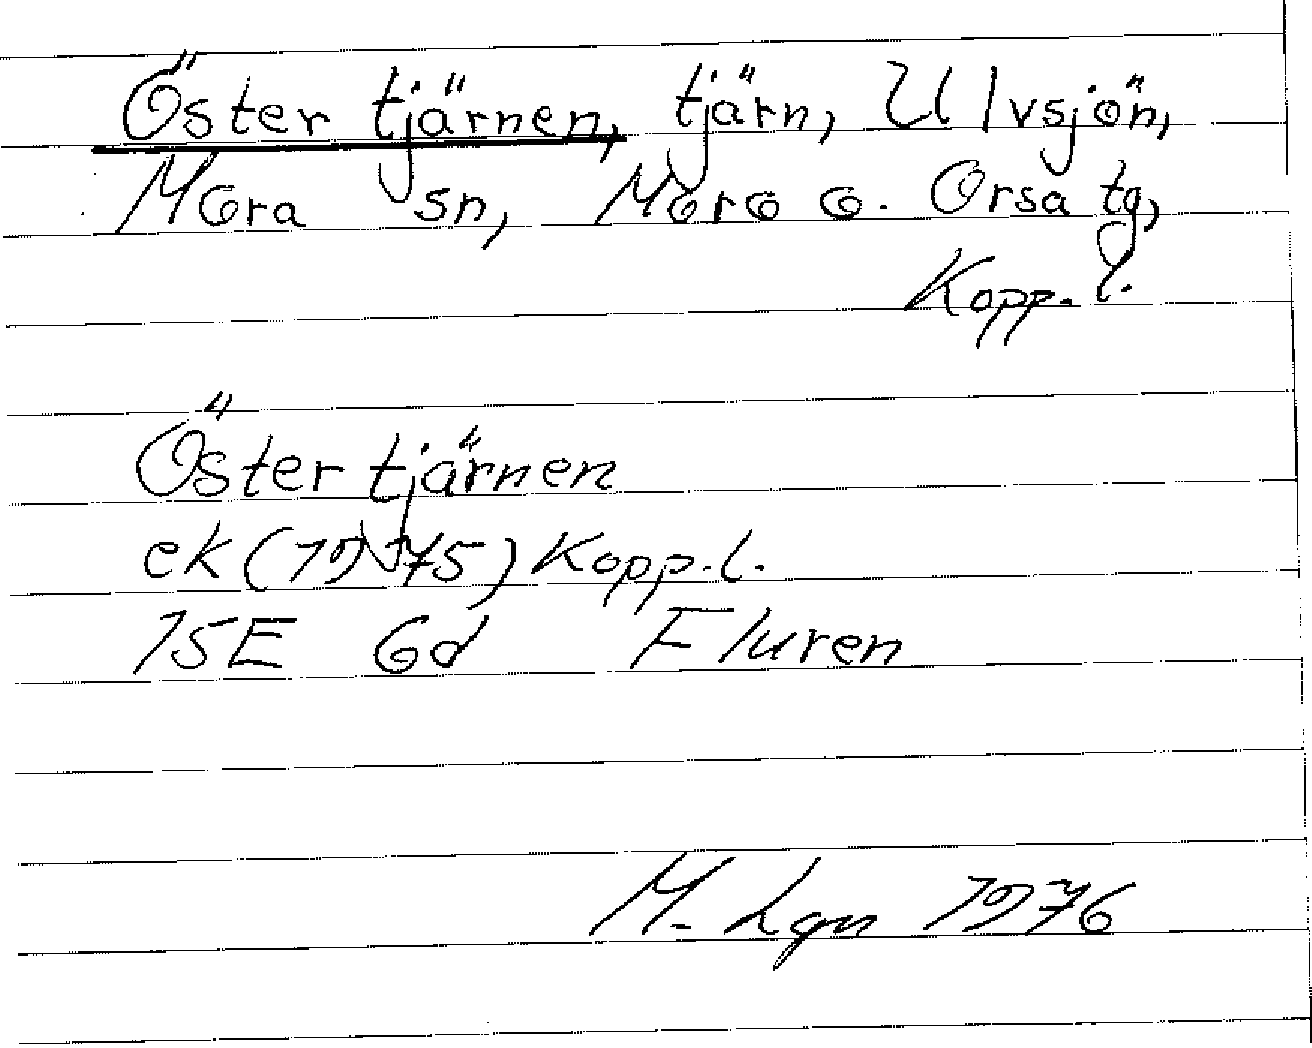 Öster tjärnen, tjärn, Ulvsjön,
Mora sn, Mora o. Orsa tg,
Kopp. l.
Öster tjärnen
ek (1975) Kopp. l.
15E 6d Fluren
M. Lgn 1976